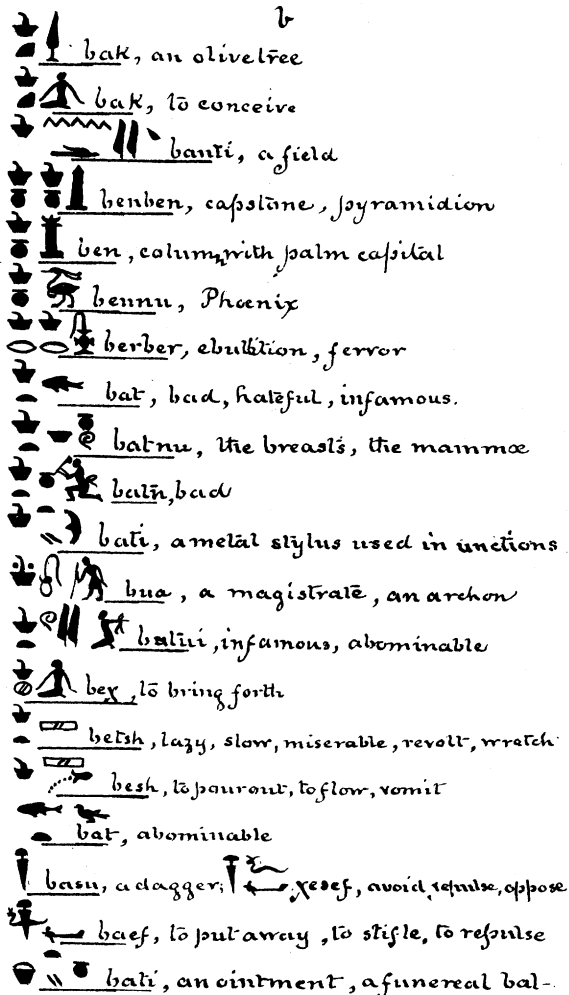 b
bak, an olive tree
bak, to conceive
banti, a field
benben, capstone, pyramidion
ben, column with palm capital
bennu, Phœnix
berber, ebullition, fervor
bat, bad, hateful, infamous.
batnu, the breasts, the mammæ
batn, bad
bati, a metal stylus used in unctions
bua, a magistrate, an archon
batui, infamous, abominable
bex, to bring forth
betsh, lazy, slow, miserable, revolt, wretch
besh, to pour out, to flow, vomit
bat, abominable
basu, a dagger; xesef, avoid, repulse, oppose
baef, to put away, to stifle, to repulse
bati, an ointment, a funereal bal-